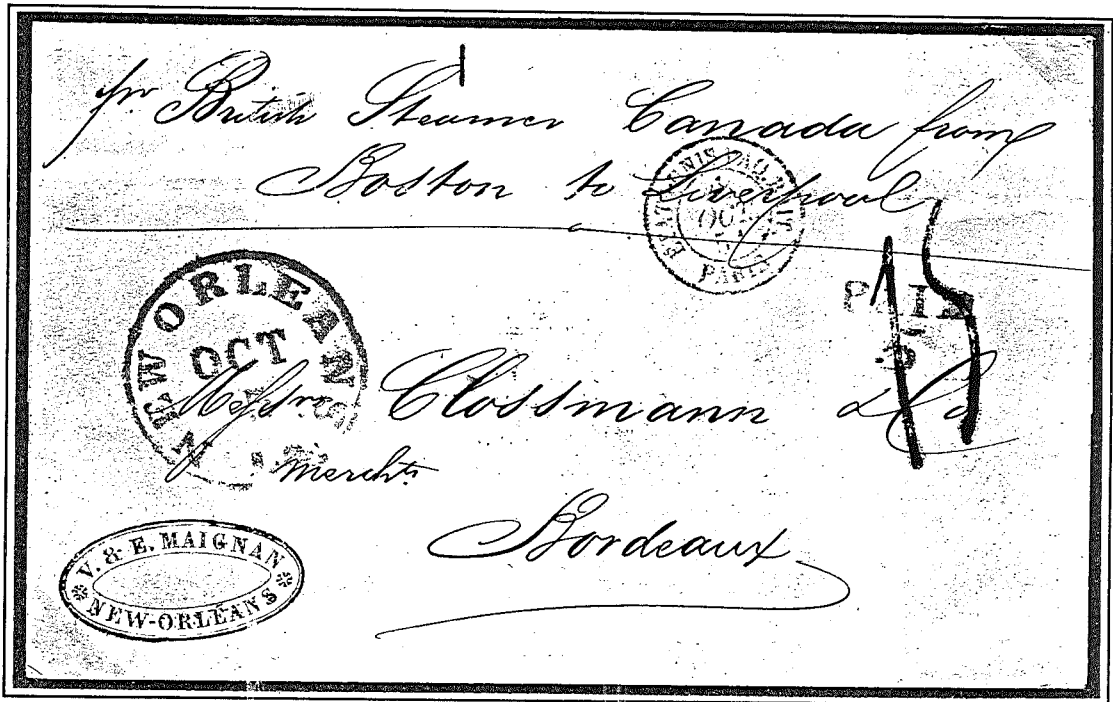 pr British Steamer Canada from
Boston to Liverpool
PARIS
NEW ORLEANS
OCT
PAID
15
Messrs Clossmann & Co
Merchts
Bordeaux
V. & E. MAIGNAN
NEW-ORLEANS